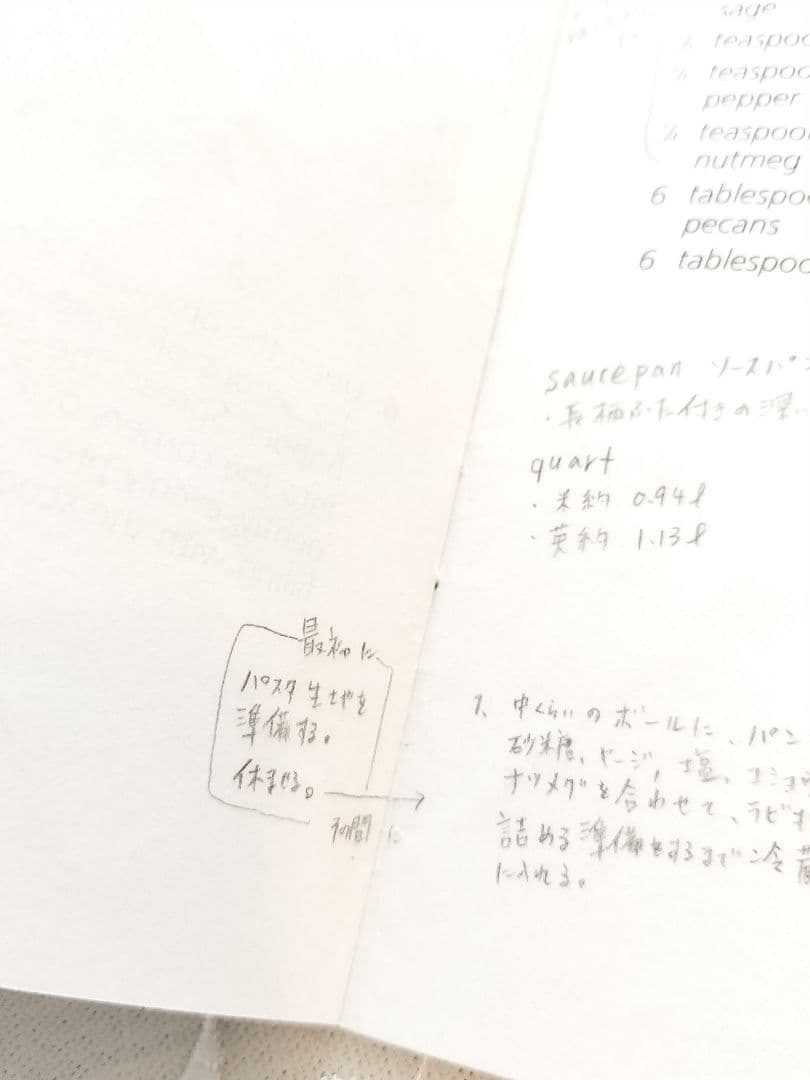 最初に、
パスタ生地を
準備する。
休ませる。
間に
sage
teaspoo
teaspoo
pepper
¼ teaspoo
nutmeg
6 tablespoo
pecans
6 tablespoo
saucepan ソースパン
・長柄ふた付きの深い
quart
・米約 0.94ℓ
・英約 1.13ℓ
1、中くらいのボールに、パン
砂糖、セージ、塩、コショウ
ナツメグを合わせて、ラビオ
詰める準備をするまで冷蔵
に入れる。